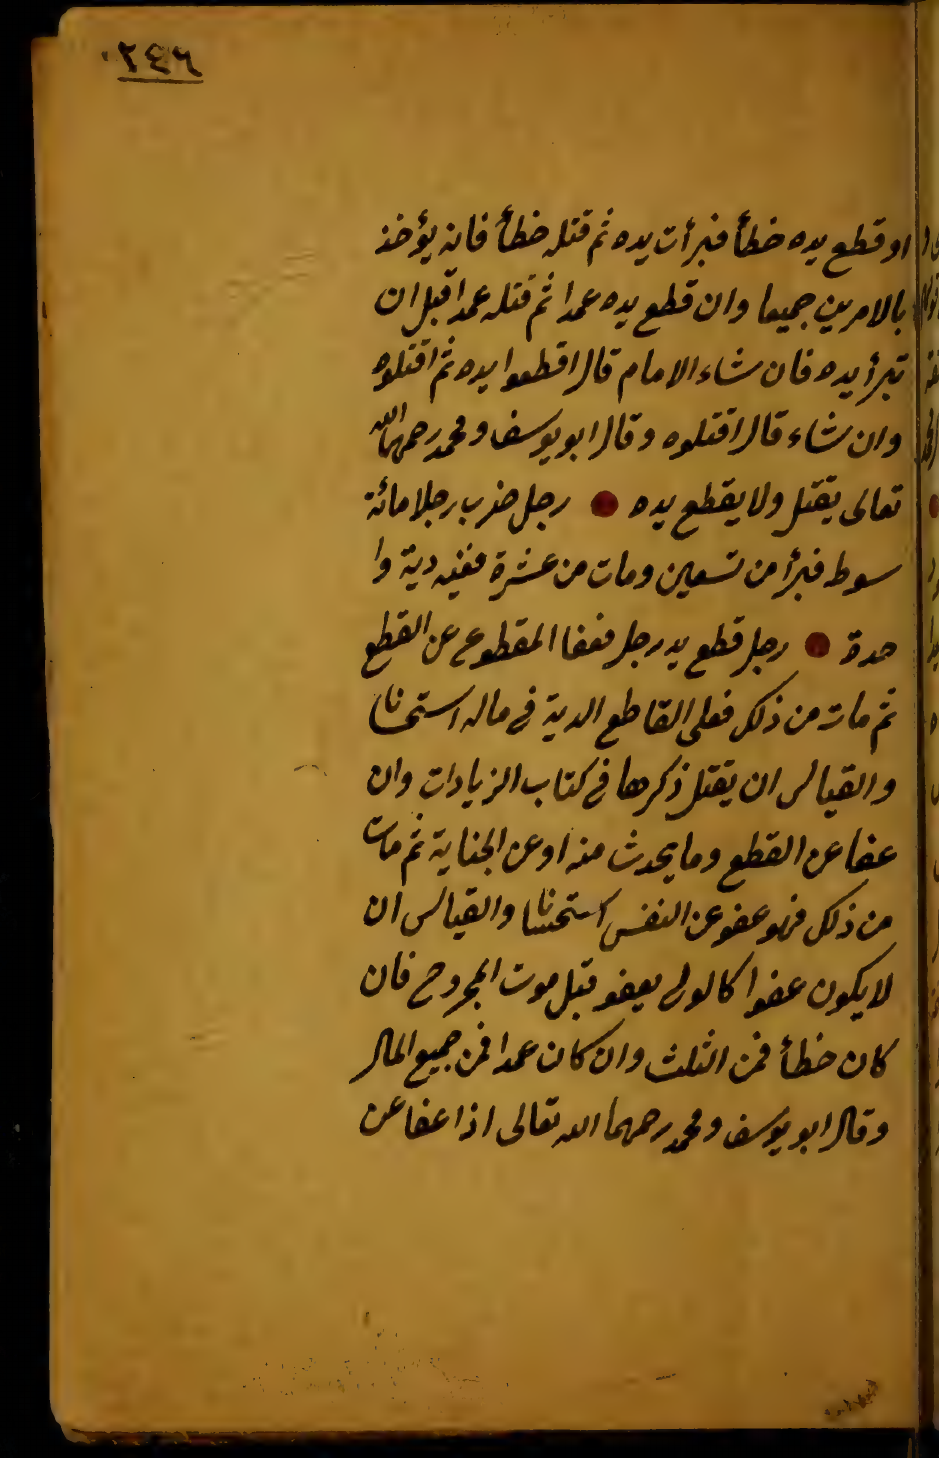 ٢٤٦
او قطع يده خطأ فبرأت يده ثم قتله خطأ فانه يؤخذ
بالامرين جميعا وان قطع يده عمدا ثم قتله عمدا قبل ان
تبرأ يده فان شاء الامام قال اقطعوا يده ثم اقتلوه
وان شاء قال اقتلوه وقال ابو يوسف ومحمد رحمهما الله
تعالى يقتل ولا يقطع يده ● رجل ضرب رجلا مائة
سوط فبرأ من تسعين ومات من عشرة ففيه دية وا
حدة ● رجل قطع يد رجل فعفا المقطوع عن القطع
ثم مات من ذلك فعلى القاطع الدية في ماله استحسانا
والقياس ان يقتل ذكرها في كتاب الزيادات وان
عفا عن القطع وما يحدث منه او عن الجناية ثم مات
من ذلك فهو عفو عن النفس استحسانا والقياس ان
لا يكون عفوا كالولي يعفو قبل موت المجروح فان
كان خطأ فمن الثلث وان كان عمدا فمن جميع المال
وقال ابو يوسف ومحمد رحمهما الله تعالى اذا عفا عن